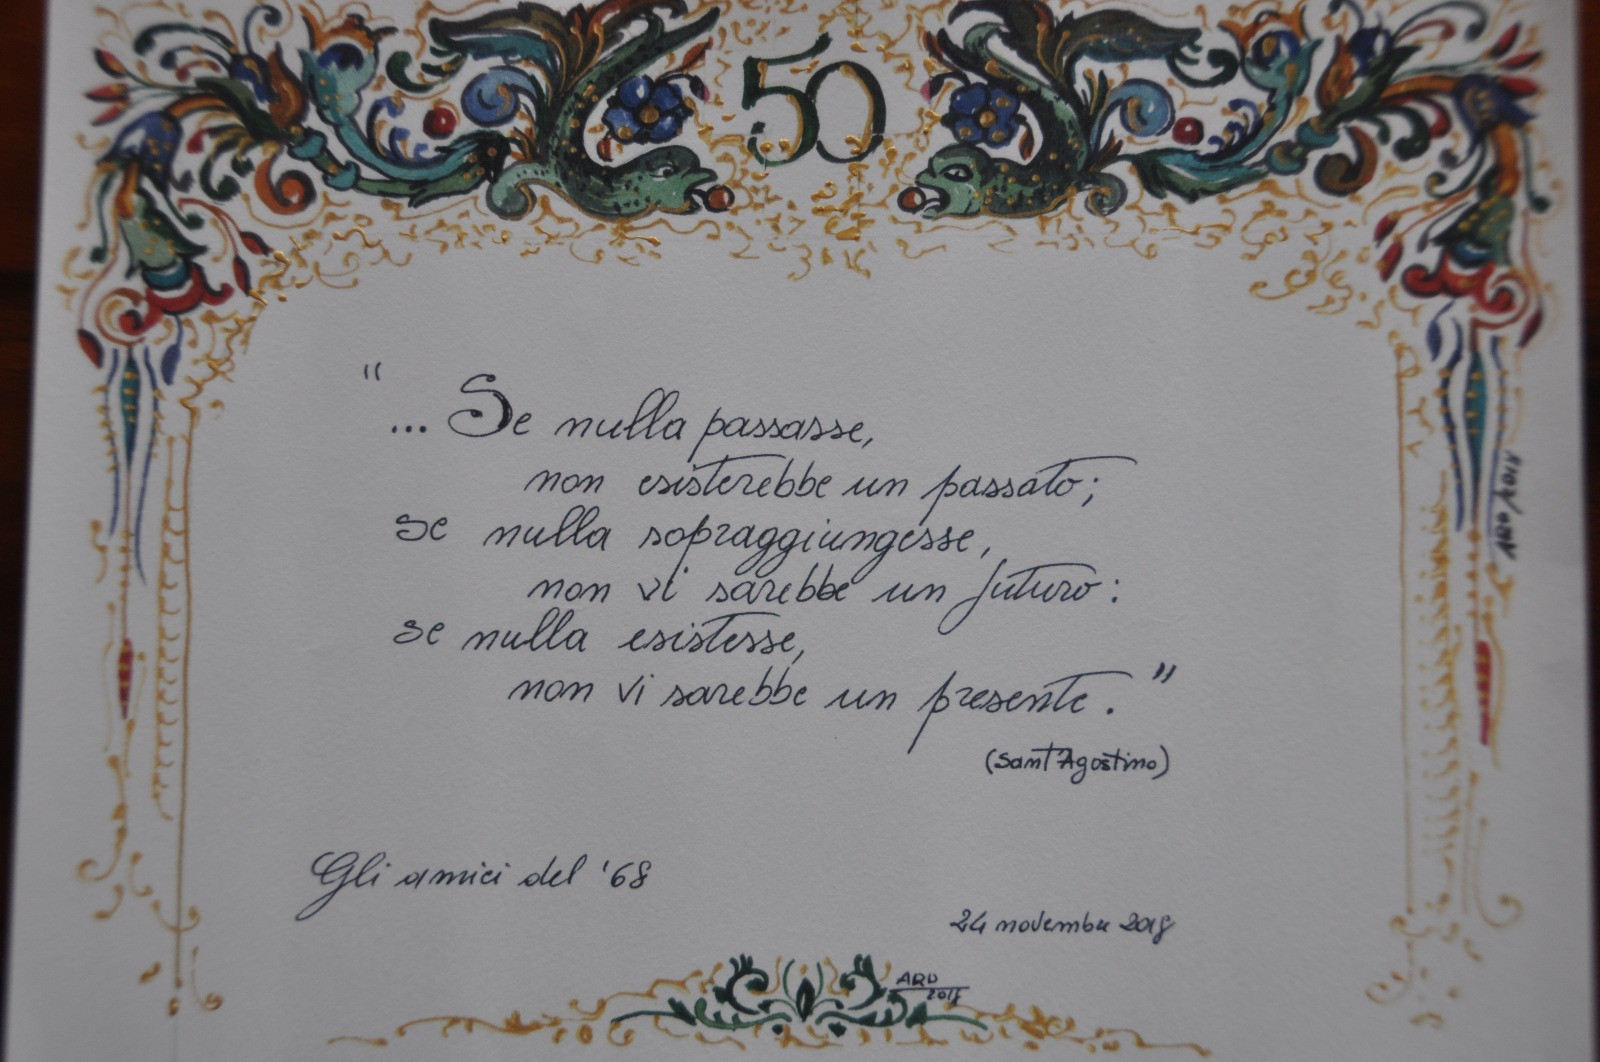 50
“
... Se nulla passasse,
non esisterebbe un passato;
se nulla sopraggiungesse,
non vi sarebbe un futuro:
se nulla esistesse,
non vi sarebbe un presente.”
(Sant'Agostino)
Gli amici del '68
24 novembre 2018
ARD